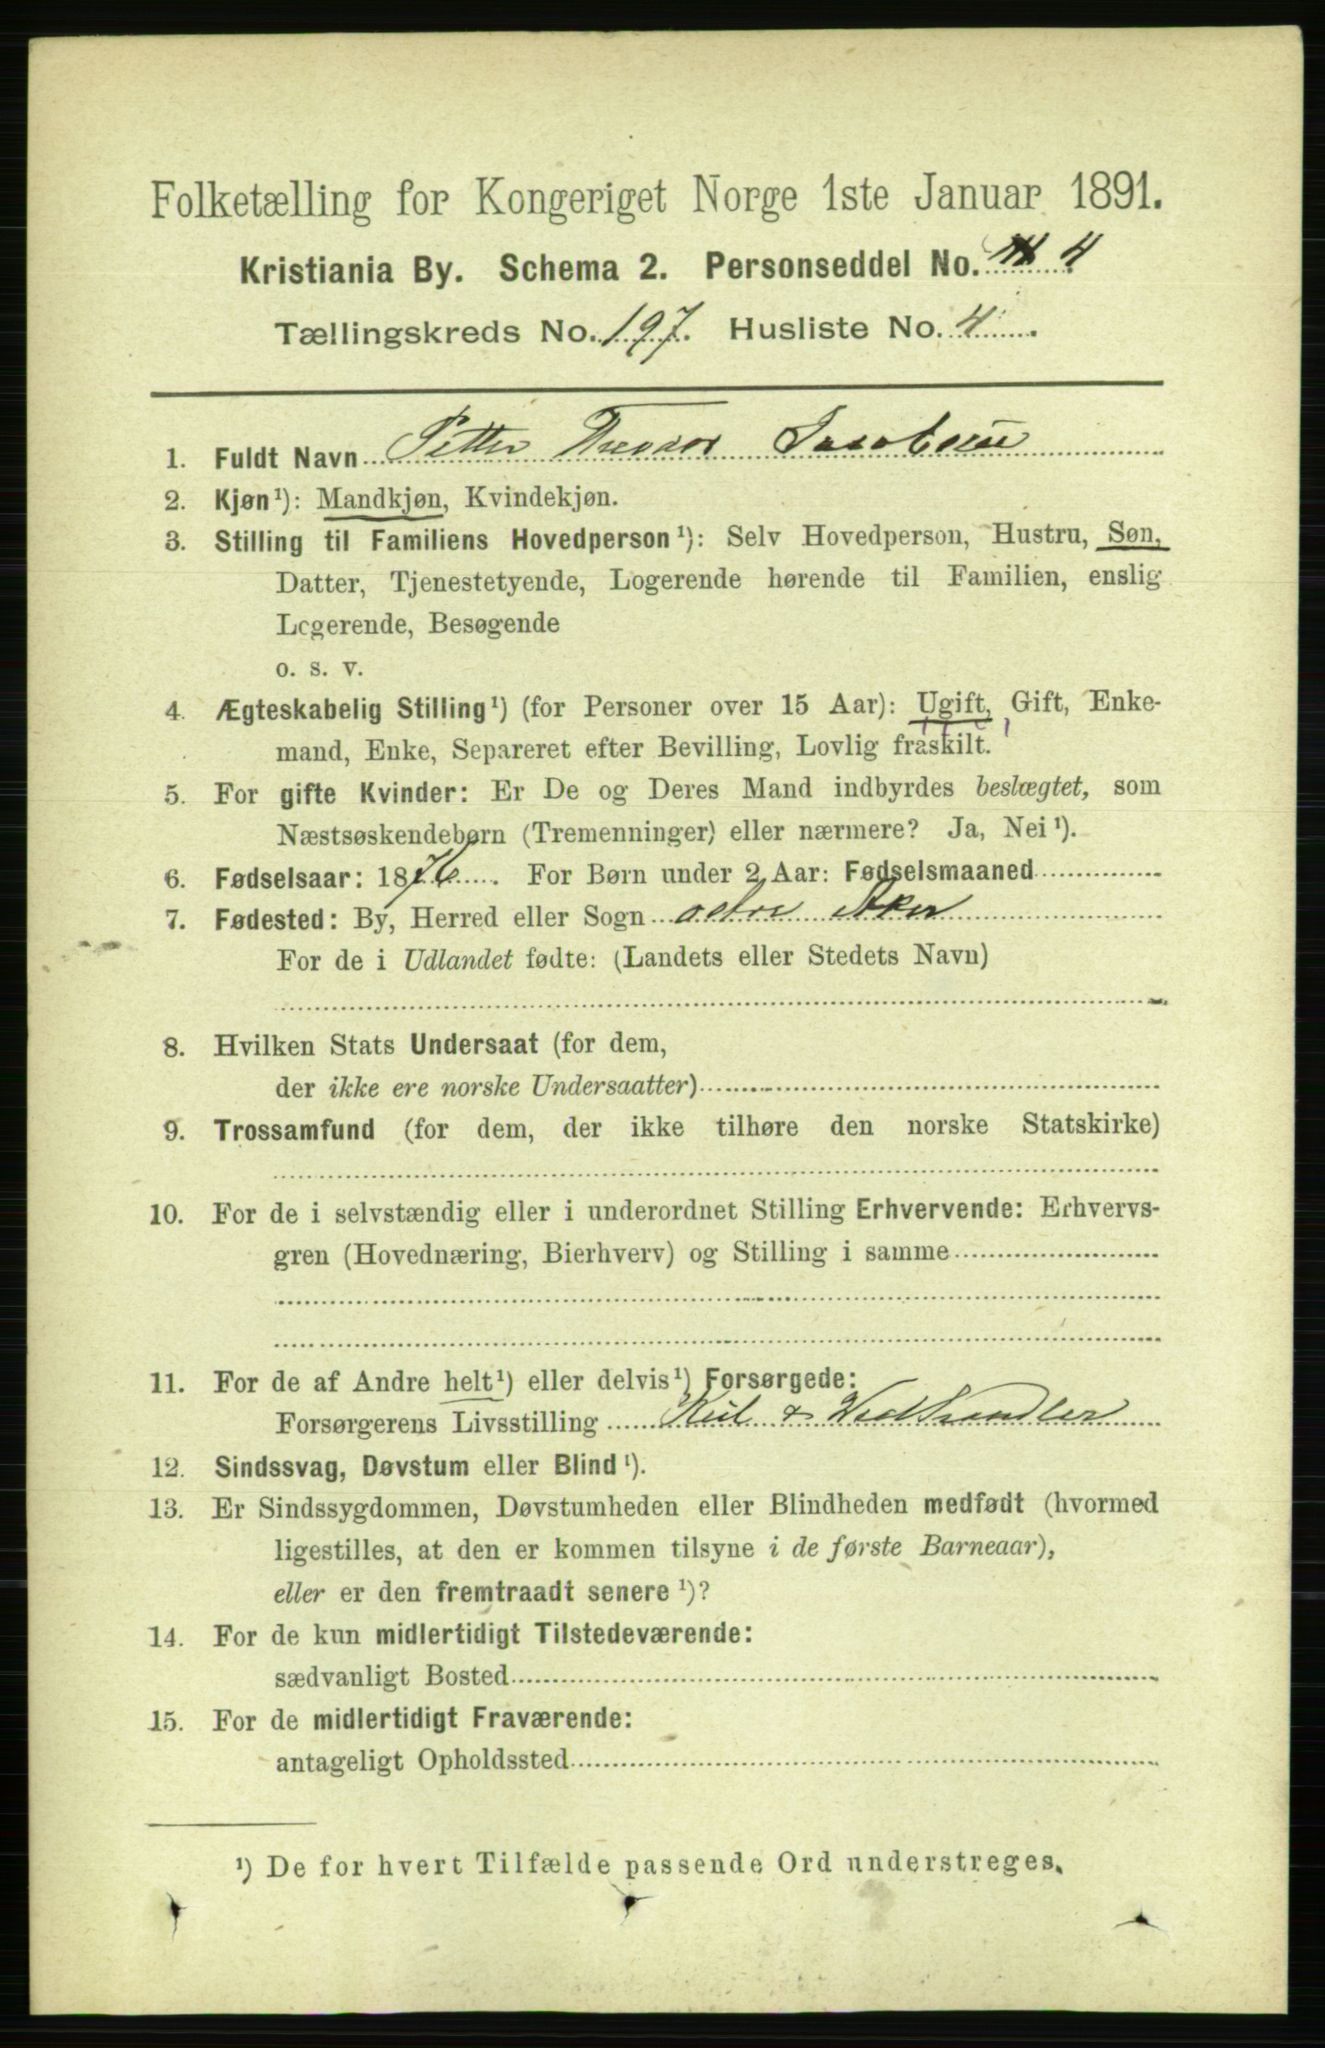 Folketælling for Kongeriget Norge 1ste Januar 1891.
Kristiania By. Schema 2. Personseddel No. 4
Tællingskreds No. 197. Husliste No. 4.
1. Fuldt Navn Petter Theodor Jacobsen
2. Kjøn¹): Mandkjøn, Kvindekjøn.
3. Stilling til Familiens Hovedperson¹): Selv Hovedperson, Hustru, Søn,
Datter, Tjenestetyende, Logerende hørende til Familien, enslig
Logerende, Besøgende
o. s. v.
4. Ægteskabelig Stilling¹) (for Personer over 15 Aar): Ugift, Gift, Enke-
mand, Enke, Separeret efter Bevilling, Lovlig fraskilt.
5. For gifte Kvinder: Er De og Deres Mand indbyrdes beslægtet, som
Næstsøskendebørn (Tremenninger) eller nærmere? Ja, Nei¹).
6. Fødselsaar: 1876. For Børn under 2 Aar: Fødselsmaaned
7. Fødested: By, Herred eller Sogn østre Aker
For de i Udlandet fødte: (Landets eller Stedets Navn)
8. Hvilken Stats Undersaat (for dem,
der ikke ere norske Undersaatter)
9. Trossamfund (for dem, der ikke tilhøre den norske Statskirke)
10. For de i selvstændig eller i underordnet Stilling Erhvervende: Erhvervs-
gren (Hovednæring, Bierhverv) og Stilling i samme
11. For de af Andre helt¹) eller delvis¹) Forsørgede:
Forsørgerens Livsstilling Kul & Vedhandler
12. Sindssvag, Døvstum eller Blind¹).
13. Er Sindssygdommen, Døvstumheden eller Blindheden medfødt (hvormed
ligestilles, at den er kommen tilsyne i de første Barneaar),
eller er den fremtraadt senere¹)?
14. For de kun midlertidigt Tilstedeværende:
sædvanligt Bosted
15. For de midlertidigt Fraværende:
antageligt Opholdssted
¹) De for hvert Tilfælde passende Ord understreges.